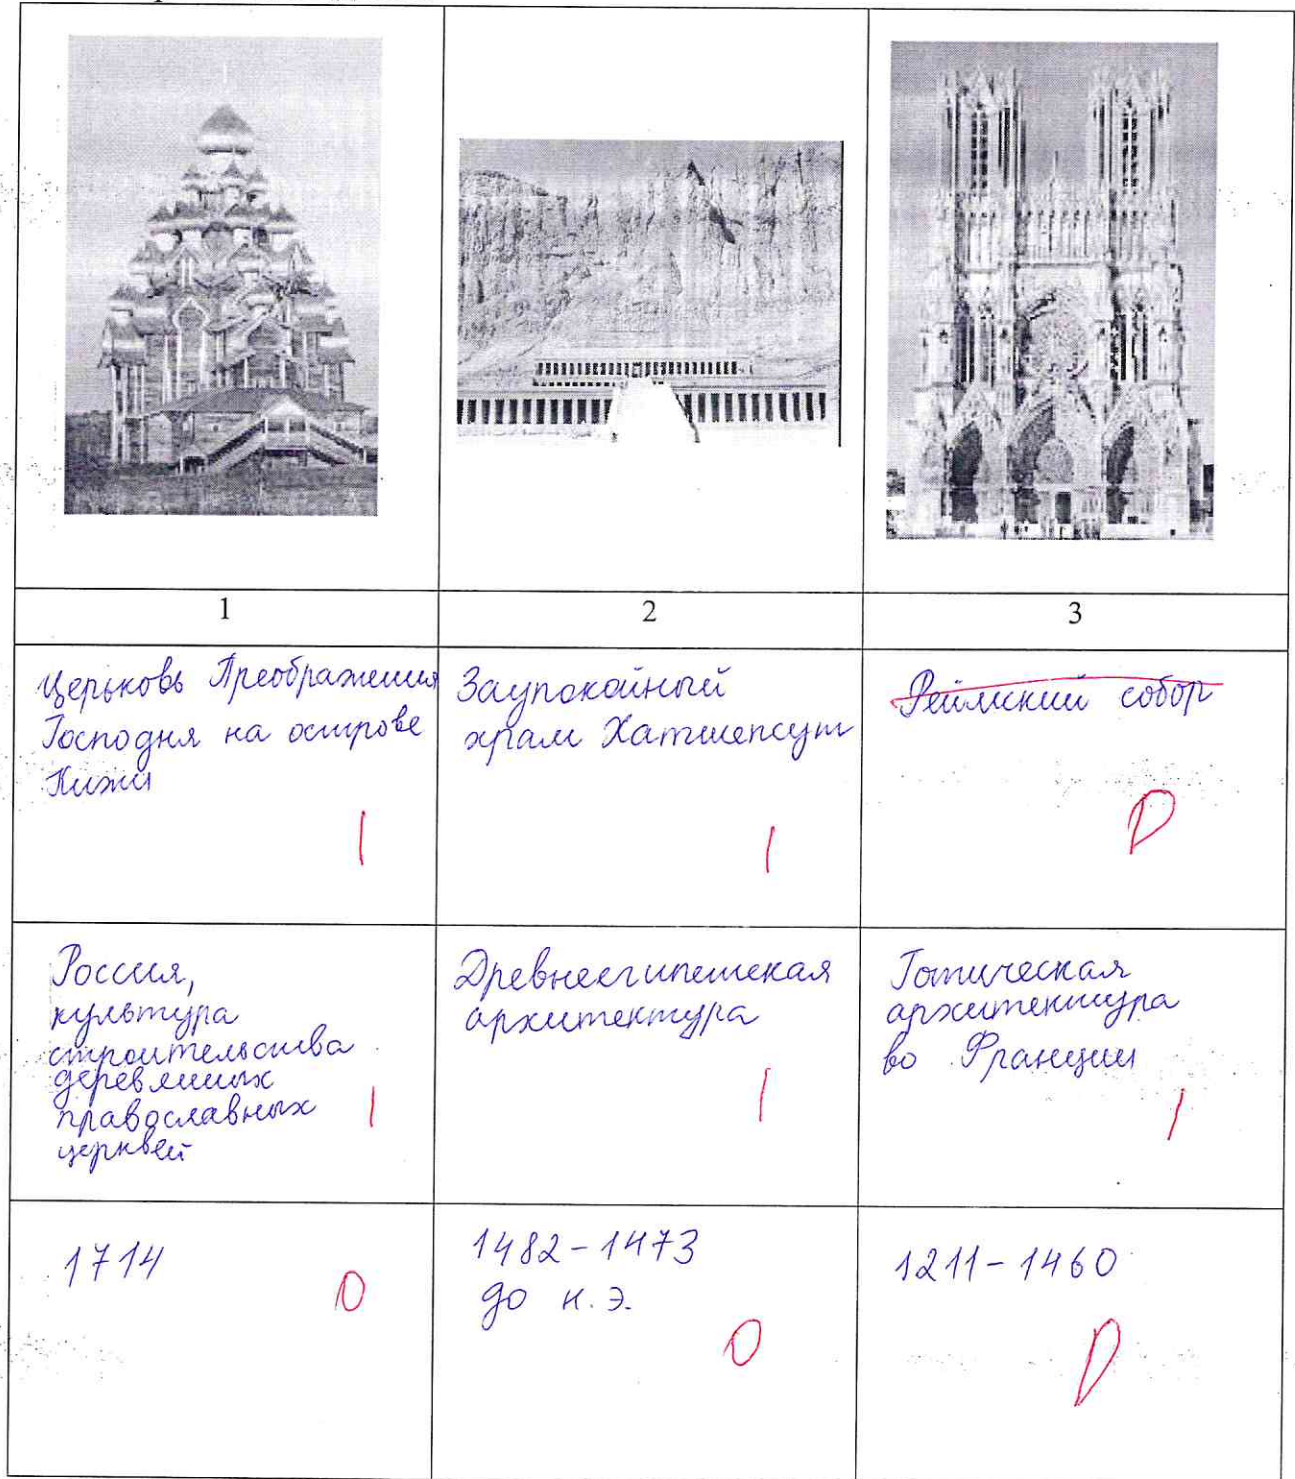 1
2
3
Церковь Преображения
Господня на острове
Кижи
1
Заупокойный
храм Хатшепсут
1
Реймский собор
0
Россия,
культура
строительства
деревянных
православных
церквей
1
Древнеегипетская
архитектура
1
Готическая
архитектура
во Франции
1
1714
0
1482-1473
до н.э.
0
1211-1460
0